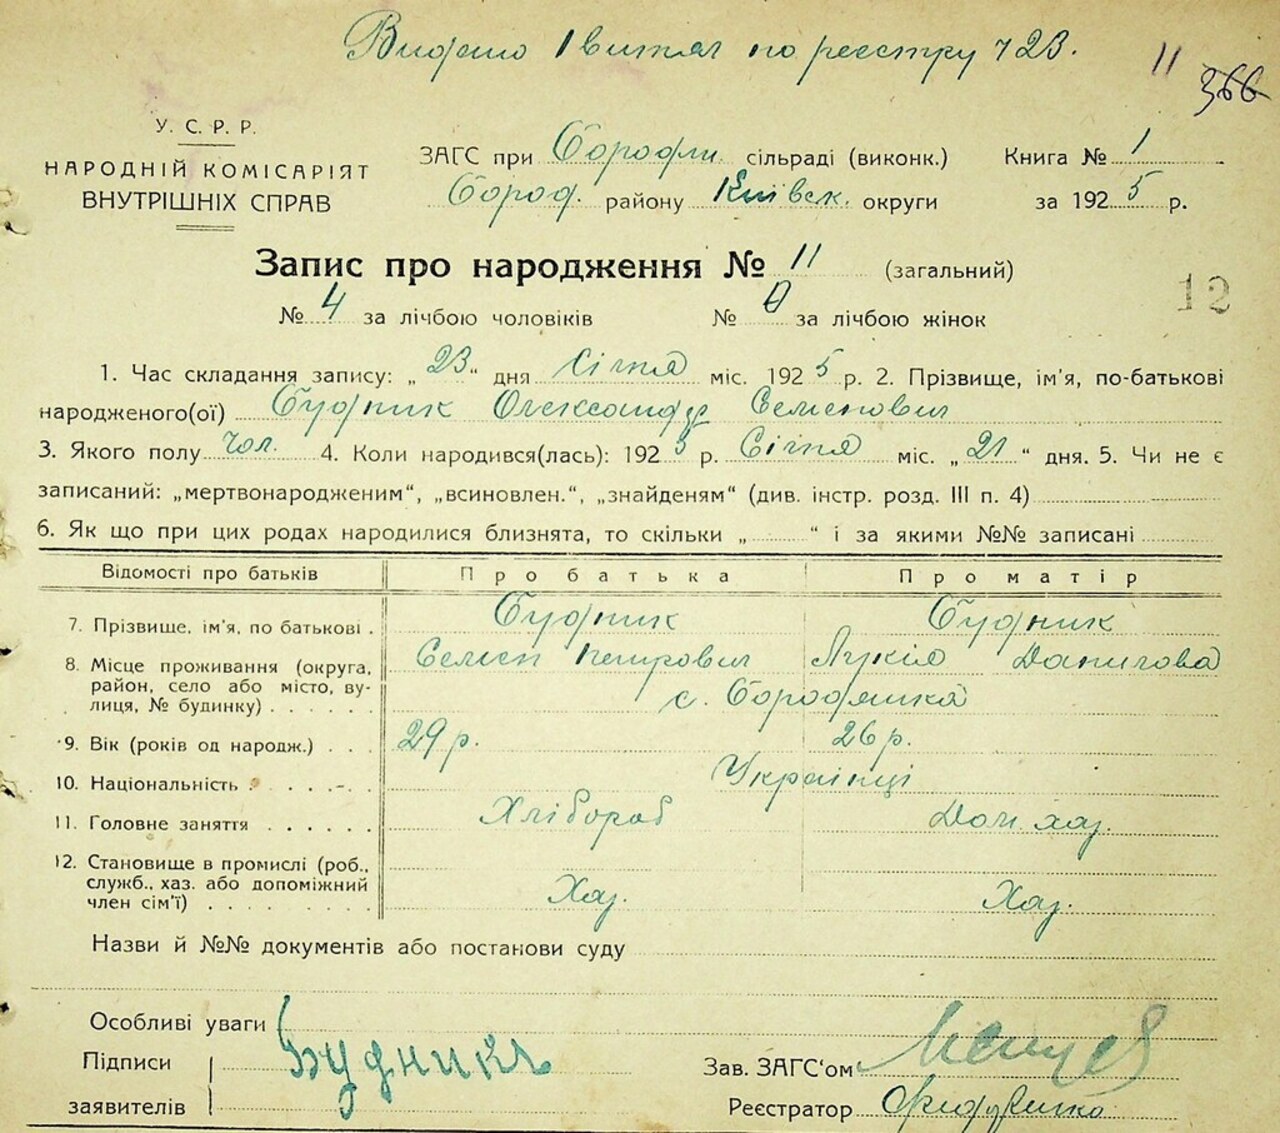 Видано 1 витяг по реєстру ч 23.
11
366
У. С. Р. Р.
НАРОДНІЙ КОМІСАРІЯТ
ВНУТРІШНІХ СПРАВ
ЗАГС при Бородян. сільраді (виконк.) Книга № 1
Бород. району Київськ. округи за 1925 р.
Запис про народження № 11 (загальний)
12
№ 4 за лічбою чоловіків № 0 за лічбою жінок
1. Час складання запису: „23“ дня Січня міс. 1925 р. 2. Прізвище, ім'я, по-батькові
народженого(ої) Будник Олександр Семенович
3. Якого полу чол. 4. Коли народився(лась): 1925 р. Січня міс. „21“ дня. 5. Чи не є
записаний: „мертвонародженим“, „всиновлен.“, „знайденям“ (див. інстр. розд. III п. 4)
6. Як що при цих родах народилися близнята, то скільки „ “ і за якими №№ записані
Відомості про батьків Про батька Про матір
7. Прізвище, ім'я, по батькові . Будник Будник
Семен Петрович Лукія Данилова
8. Місце проживання (округа,
район, село або місто, ву-
лиця, № будинку) . . . . . . с. Бородянка
9. Вік (років од народж.) . . . 29 р. 26 р.
10. Національність . . . . . Українці
11. Головне заняття . . . . . . Хлібороб Дом. хаз.
12. Становище в промислі (роб.,
служб., хаз. або допоміжний
член сім'ї) . . . . . . . Хаз. Хаз.
Назви й №№ документів або постанови суду
Особливі уваги
Підписи
заявителів
Будникъ
Зав. ЗАГС'ом
Реєстратор